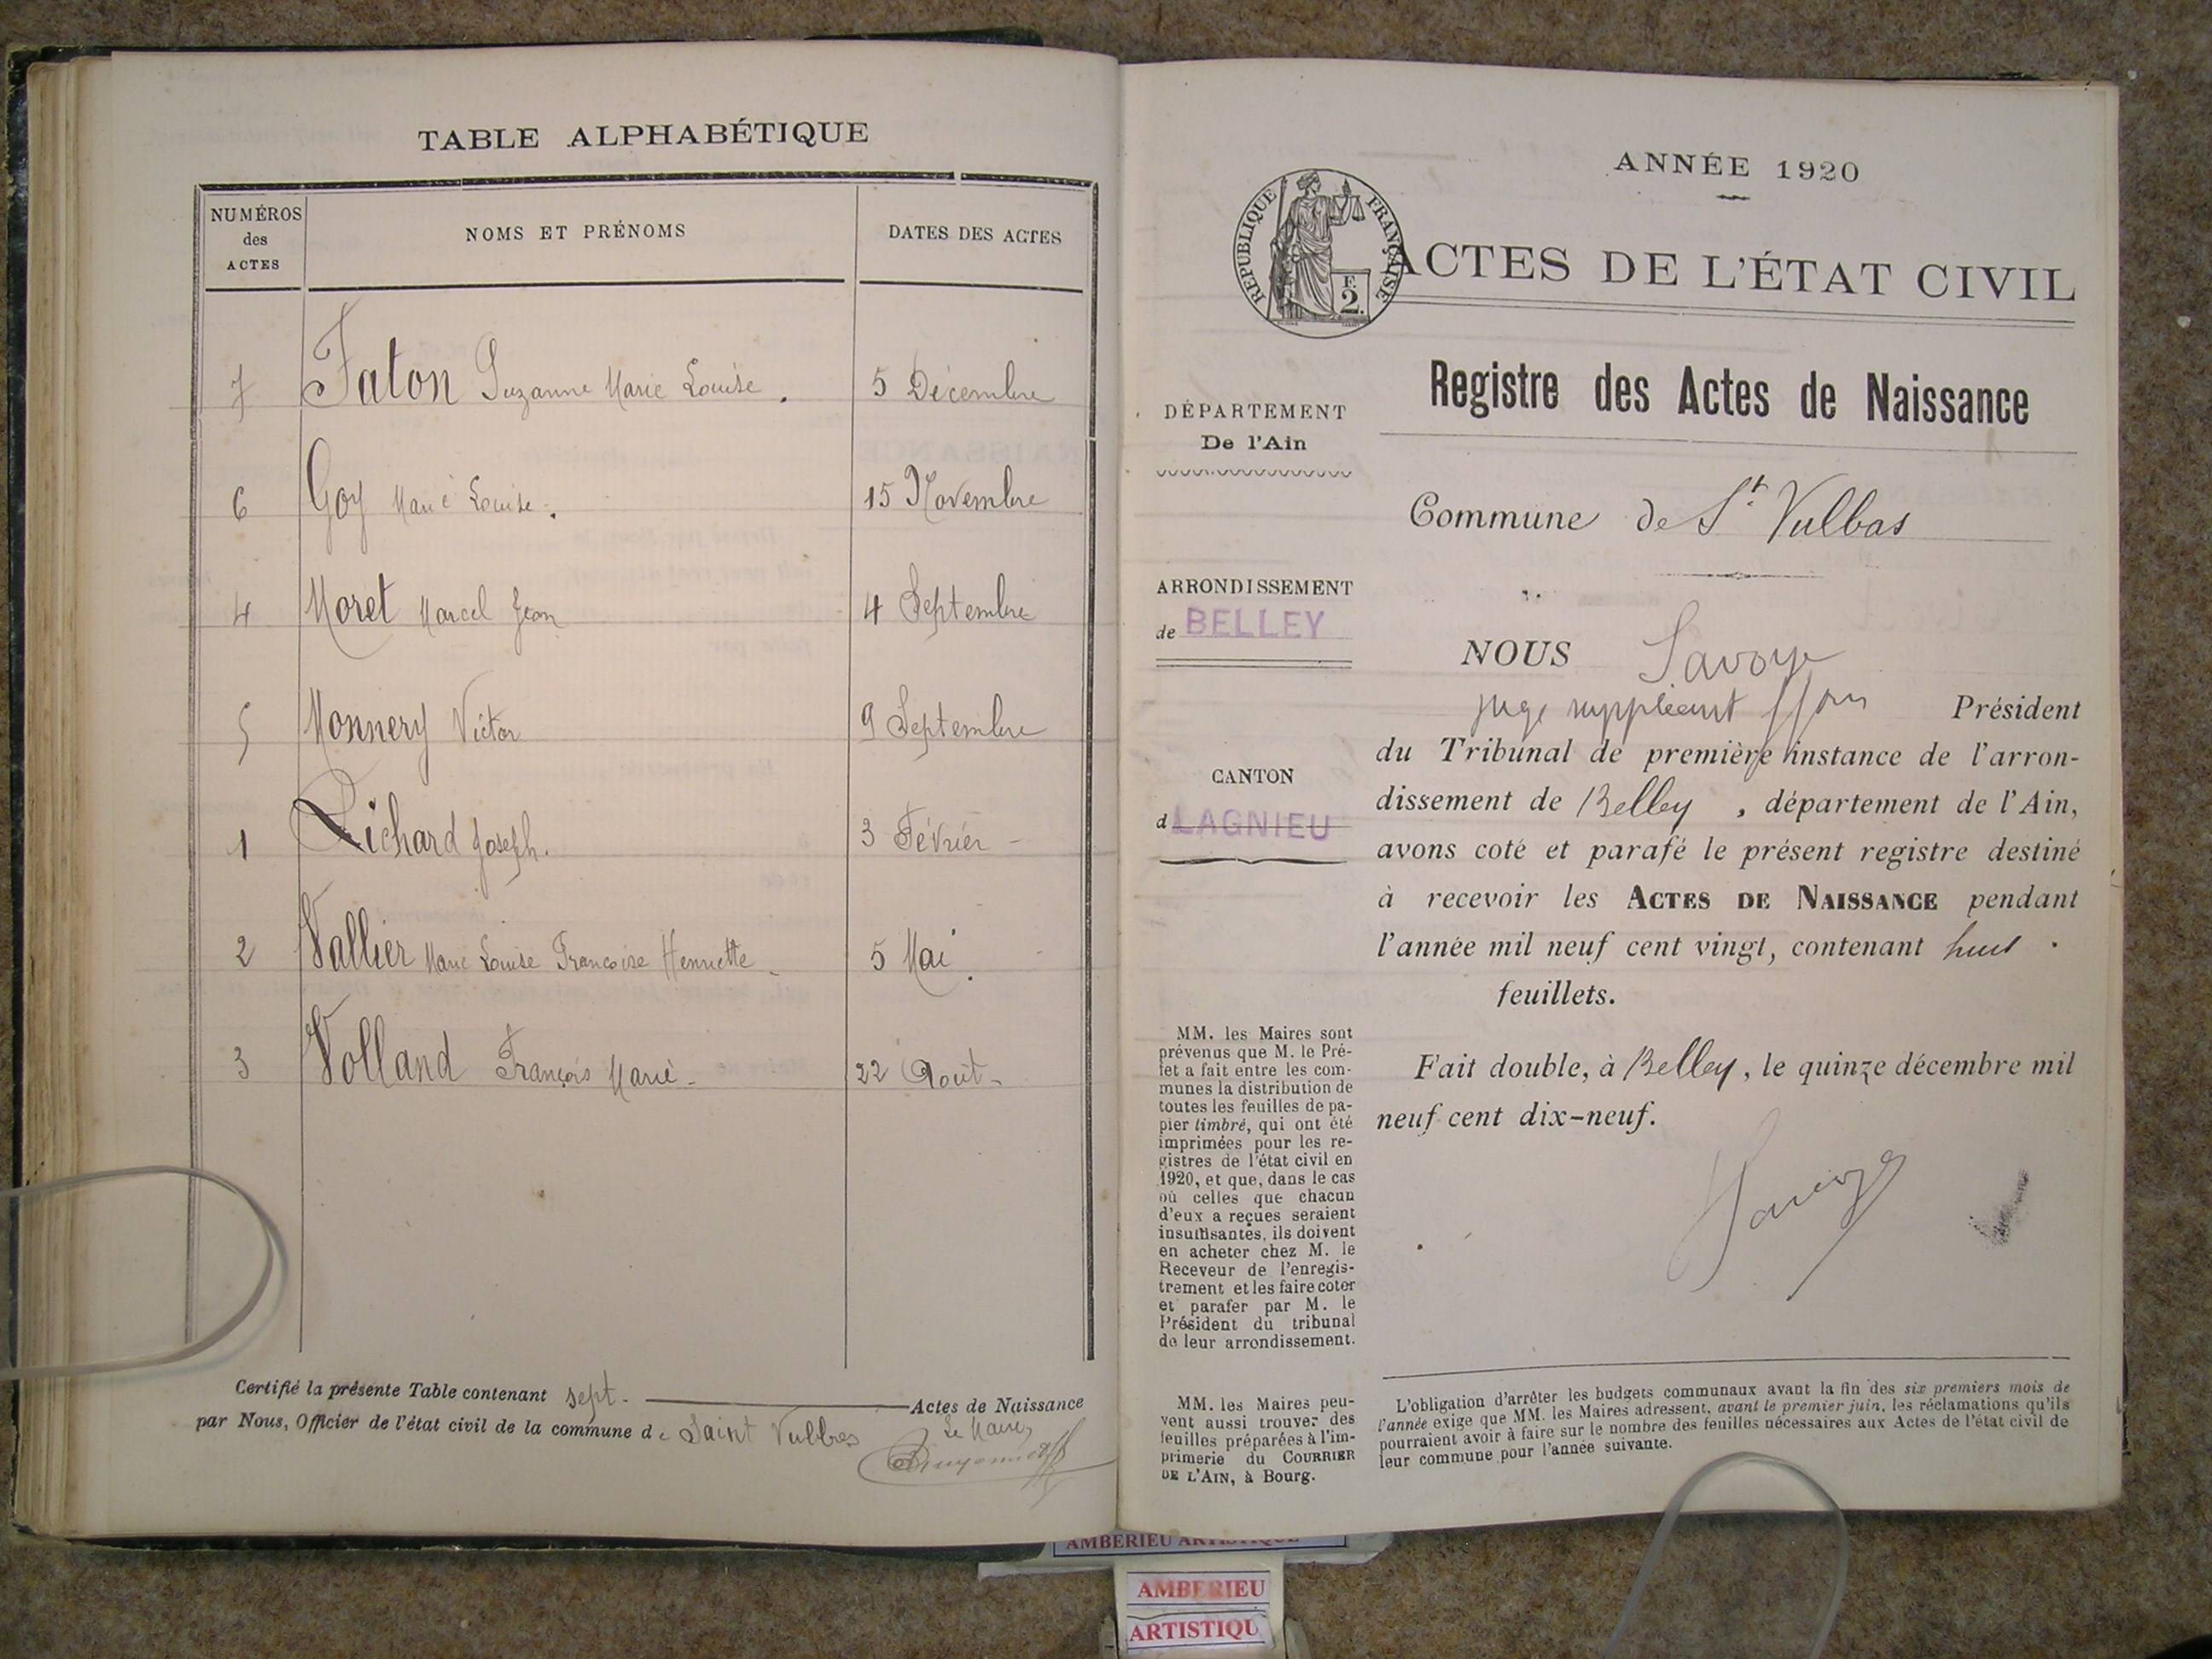 TABLE ALPHABÉTIQUE
NUMÉROS des ACTES
NOMS ET PRÉNOMS
DATES DES ACTES
7 Faton Suzanne Marie Louise. 5 Décembre
6 Goy Marie Louise. 15 Novembre
4 Moret Marcel Jean 4 Septembre
5 Monnery Victor 9 Septembre
1 Richard Joseph. 3 Février
2 Vallier Marie Louise Françoise Henriette 5 Mai.
3 Volland François Marie 22 Août
Certifié la présente Table contenant sept. Actes de Naissance
par Nous, Officier de l'état civil de la commune de Saint Vulbas
Le Maire,
ANNÉE 1920
RÉPUBLIQUE FRANÇAISE
F. 2.
ACTES DE L'ÉTAT CIVIL
Registre des Actes de Naissance
DÉPARTEMENT
De l'Ain
Commune de St. Vulbas
ARRONDISSEMENT
de BELLEY
CANTON
d LAGNIEU
NOUS Savoye
juge suppléant ffons Président
du Tribunal de première instance de l'arron-
dissement de Belley, département de l'Ain,
avons coté et parafé le présent registre destiné
à recevoir les ACTES DE NAISSANCE pendant
l'année mil neuf cent vingt, contenant huit
feuillets.
Fait double, à Belley, le quinze décembre mil
neuf cent dix-neuf.
Savoye
MM. les Maires sont
prévenus que M. le Pré-
fet a fait entre les com-
munes la distribution de
toutes les feuilles de pa-
pier timbré, qui ont été
imprimées pour les re-
gistres de l'état civil en
1920, et que, dans le cas
où celles que chacun
d'eux a reçues seraient
insuffisantes, ils doivent
en acheter chez M. le
Receveur de l'enregis-
trement et les faire coter
et parafer par M. le
Président du tribunal
de leur arrondissement.
MM. les Maires peu-
vent aussi trouver des
feuilles préparées à l'im-
primerie du COURRIER
DE L'AIN, à Bourg.
L'obligation d'arrêter les budgets communaux avant la fin des six premiers mois de
l'année exige que MM. les Maires adressent, avant le premier juin, les réclamations qu'ils
pourraient avoir à faire sur le nombre des feuilles nécessaires aux Actes de l'état civil de
leur commune pour l'année suivante.
AMBERIEU ARTISTIQUE
AMBERIEU
ARTISTIQU